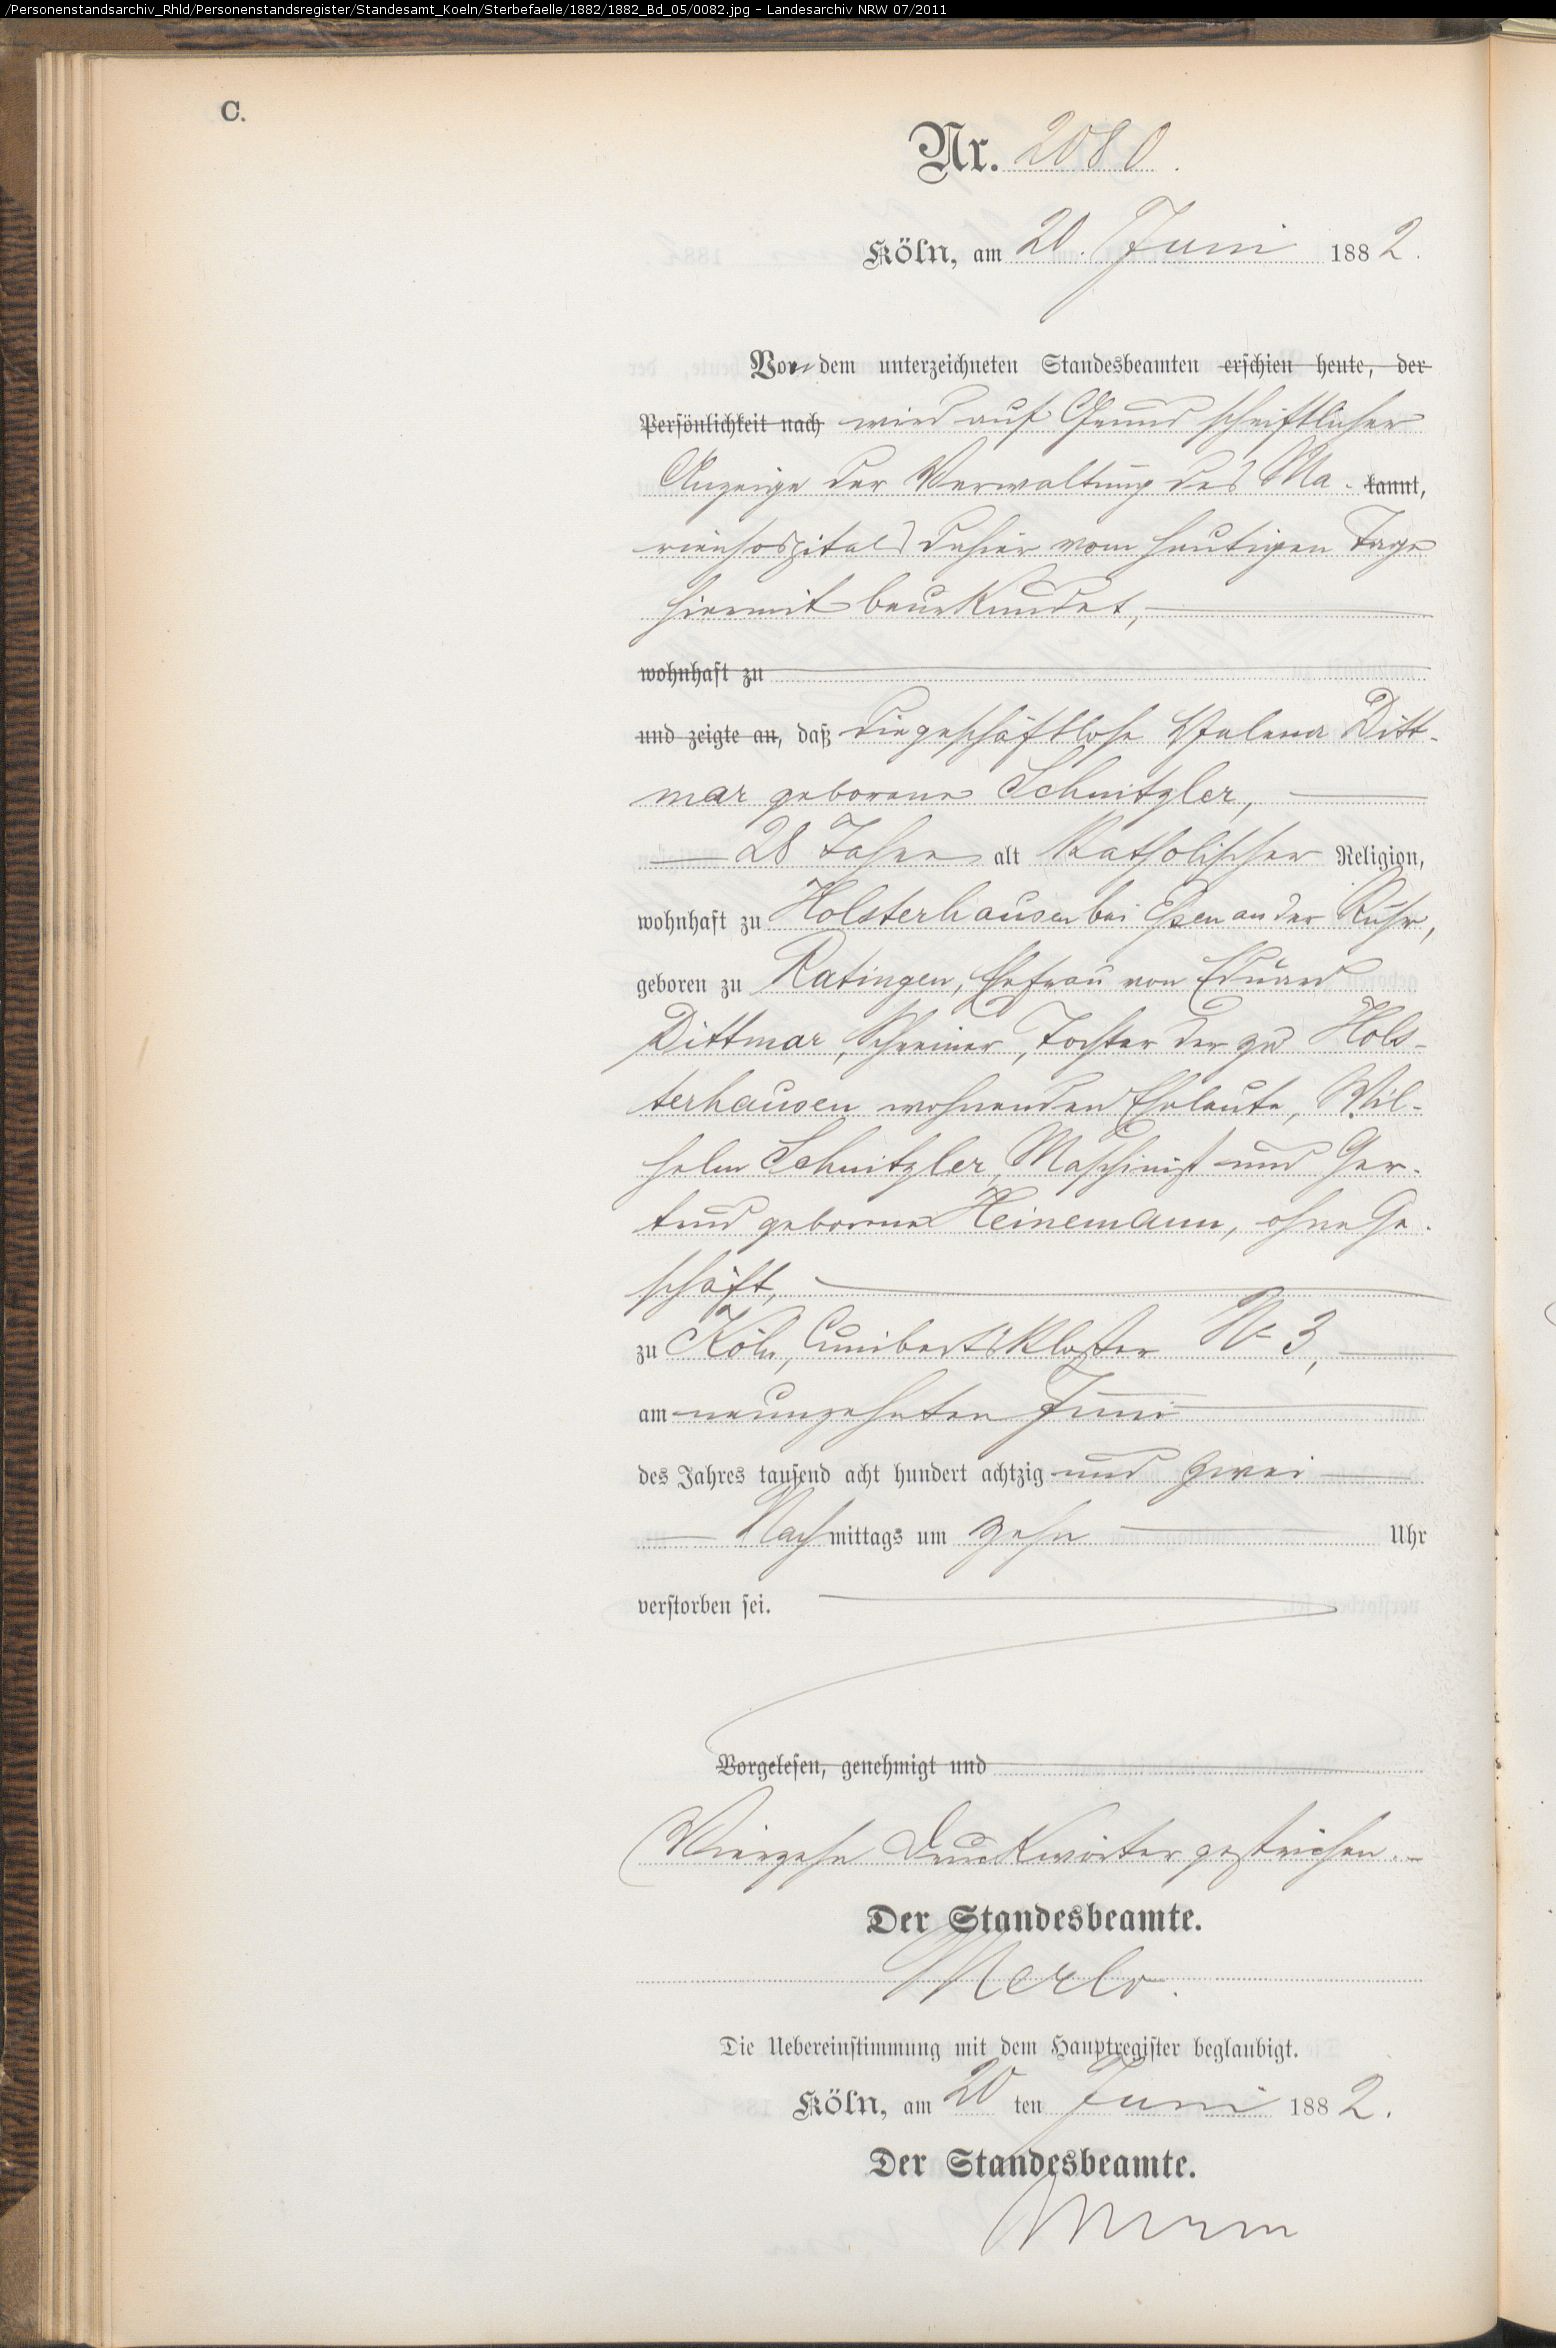 /Personenstandsarchiv_Rhld/Personenstandsregister/Standesamt_Koeln/Sterbefaelle/1882/1882_Bd_05/0082.jpg - Landesarchiv NRW 07/2011
C.
Nr. 2080.
Köln, am 20. Juni 1882.
Von dem unterzeichneten Standesbeamten erschien heute, der
Persönlichkeit nach wird auf Grund schriftlicher
Anzeige der Verwaltung des Ma- kannt,
rienhospitals dahier vom heutigen Tage
hiermit beurkundet,
wohnhaft zu
und zeigte an, daß die geschäftlose Helena Ditt-
mar geborene Schnitzler,
28 Jahre alt Katholischer Religion,
wohnhaft zu Holsterhausen bei Essen an der Ruhr,
geboren zu Ratingen, Ehefrau von Eduard
Dittmar, Schreiner, Tochter der zu Hols-
terhausen wohnenden Eheleute, Wil-
helm Schnitzler, Maschinist und Ger-
trud geborene Heinemann, ohne Ge-
schäft,
zu Köln, Cunibertskloster No 3,
am neunzehnten Juni
des Jahres tausend acht hundert achtzig und zwei
Nachmittags um zehn Uhr
verstorben sei.
Vorgelesen, genehmigt und
Vierzehn Druckwörter gestrichen.
Der Standesbeamte.
Merlo.
Die Uebereinstimmung mit dem Hauptregister beglaubigt.
Köln, am 20 ten Juni 1882.
Der Standesbeamte.